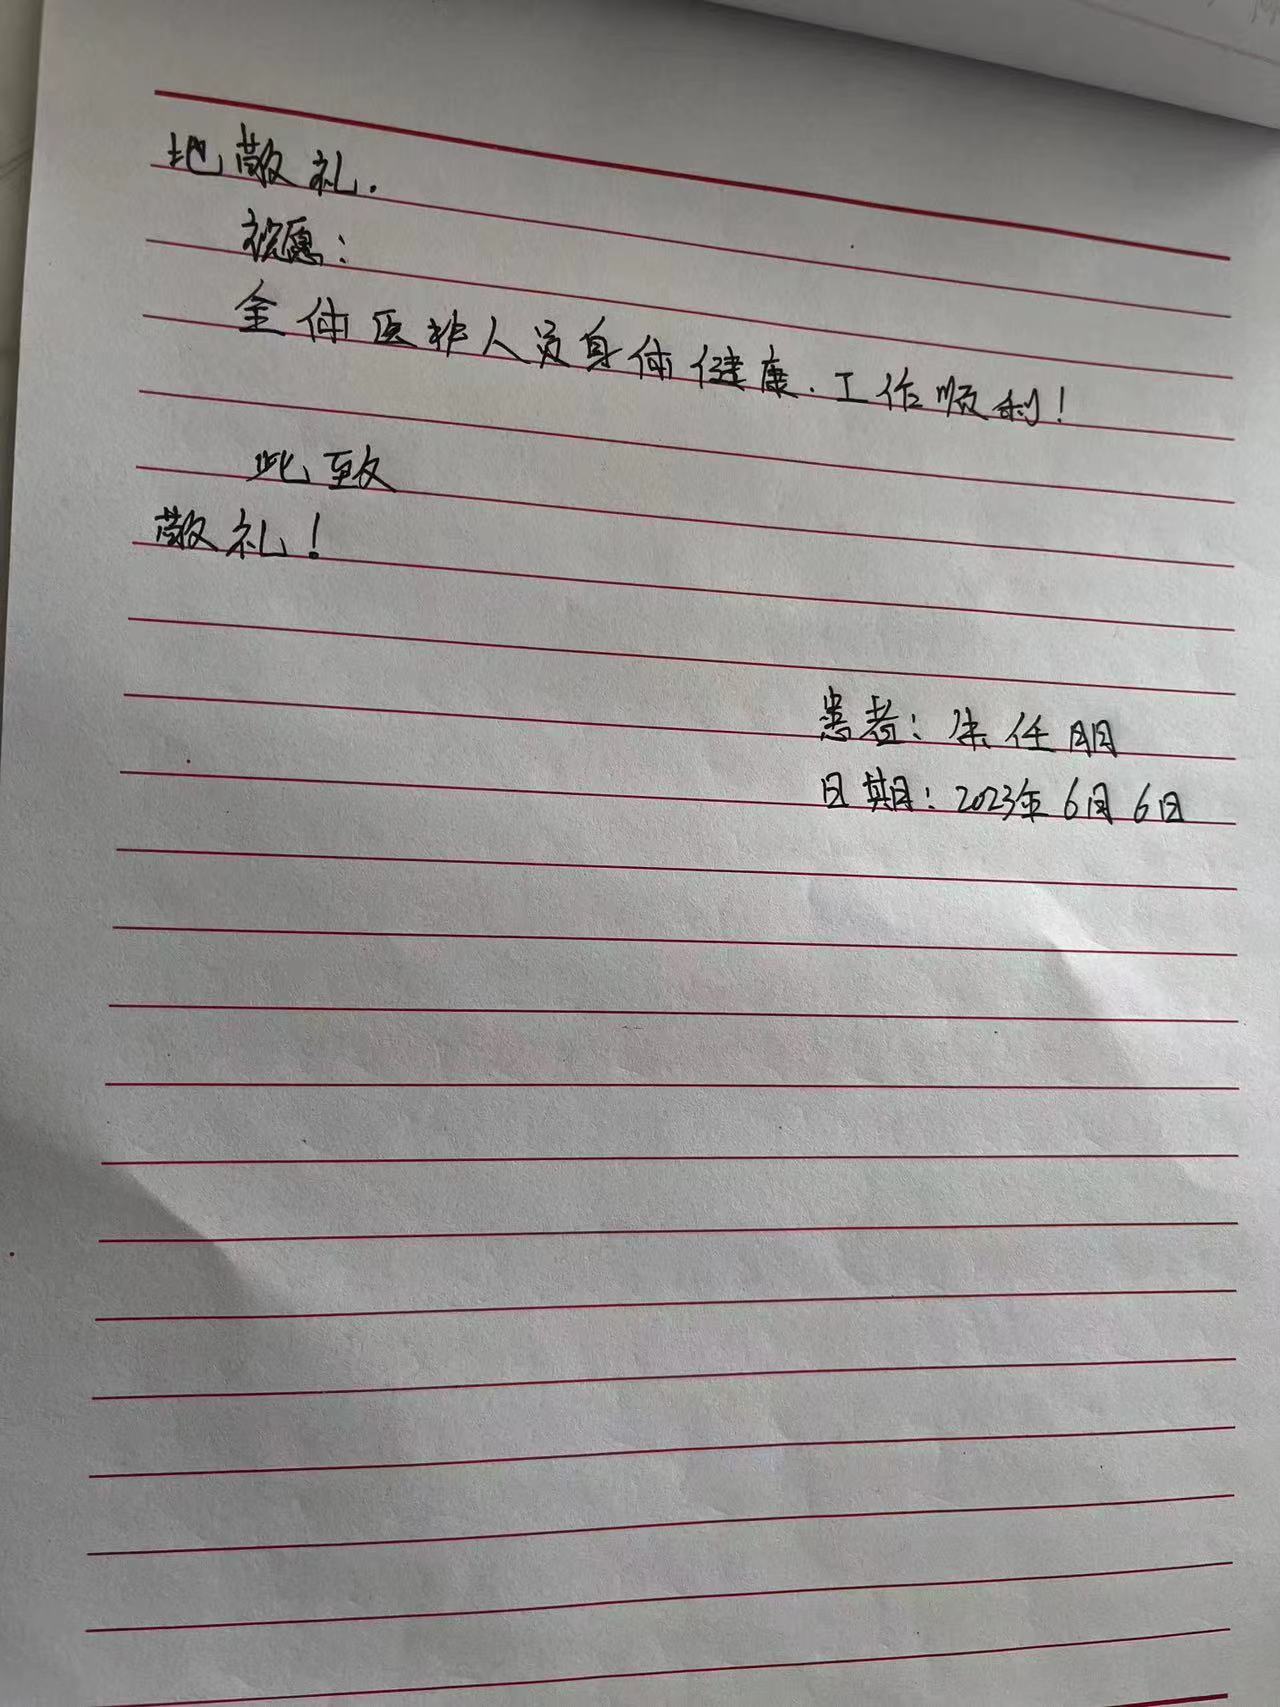 地敬礼.
祝愿:
全体医护人员身体健康.工作顺利!
此致
敬礼!
患者:朱任朋
日期:2023年6月6日